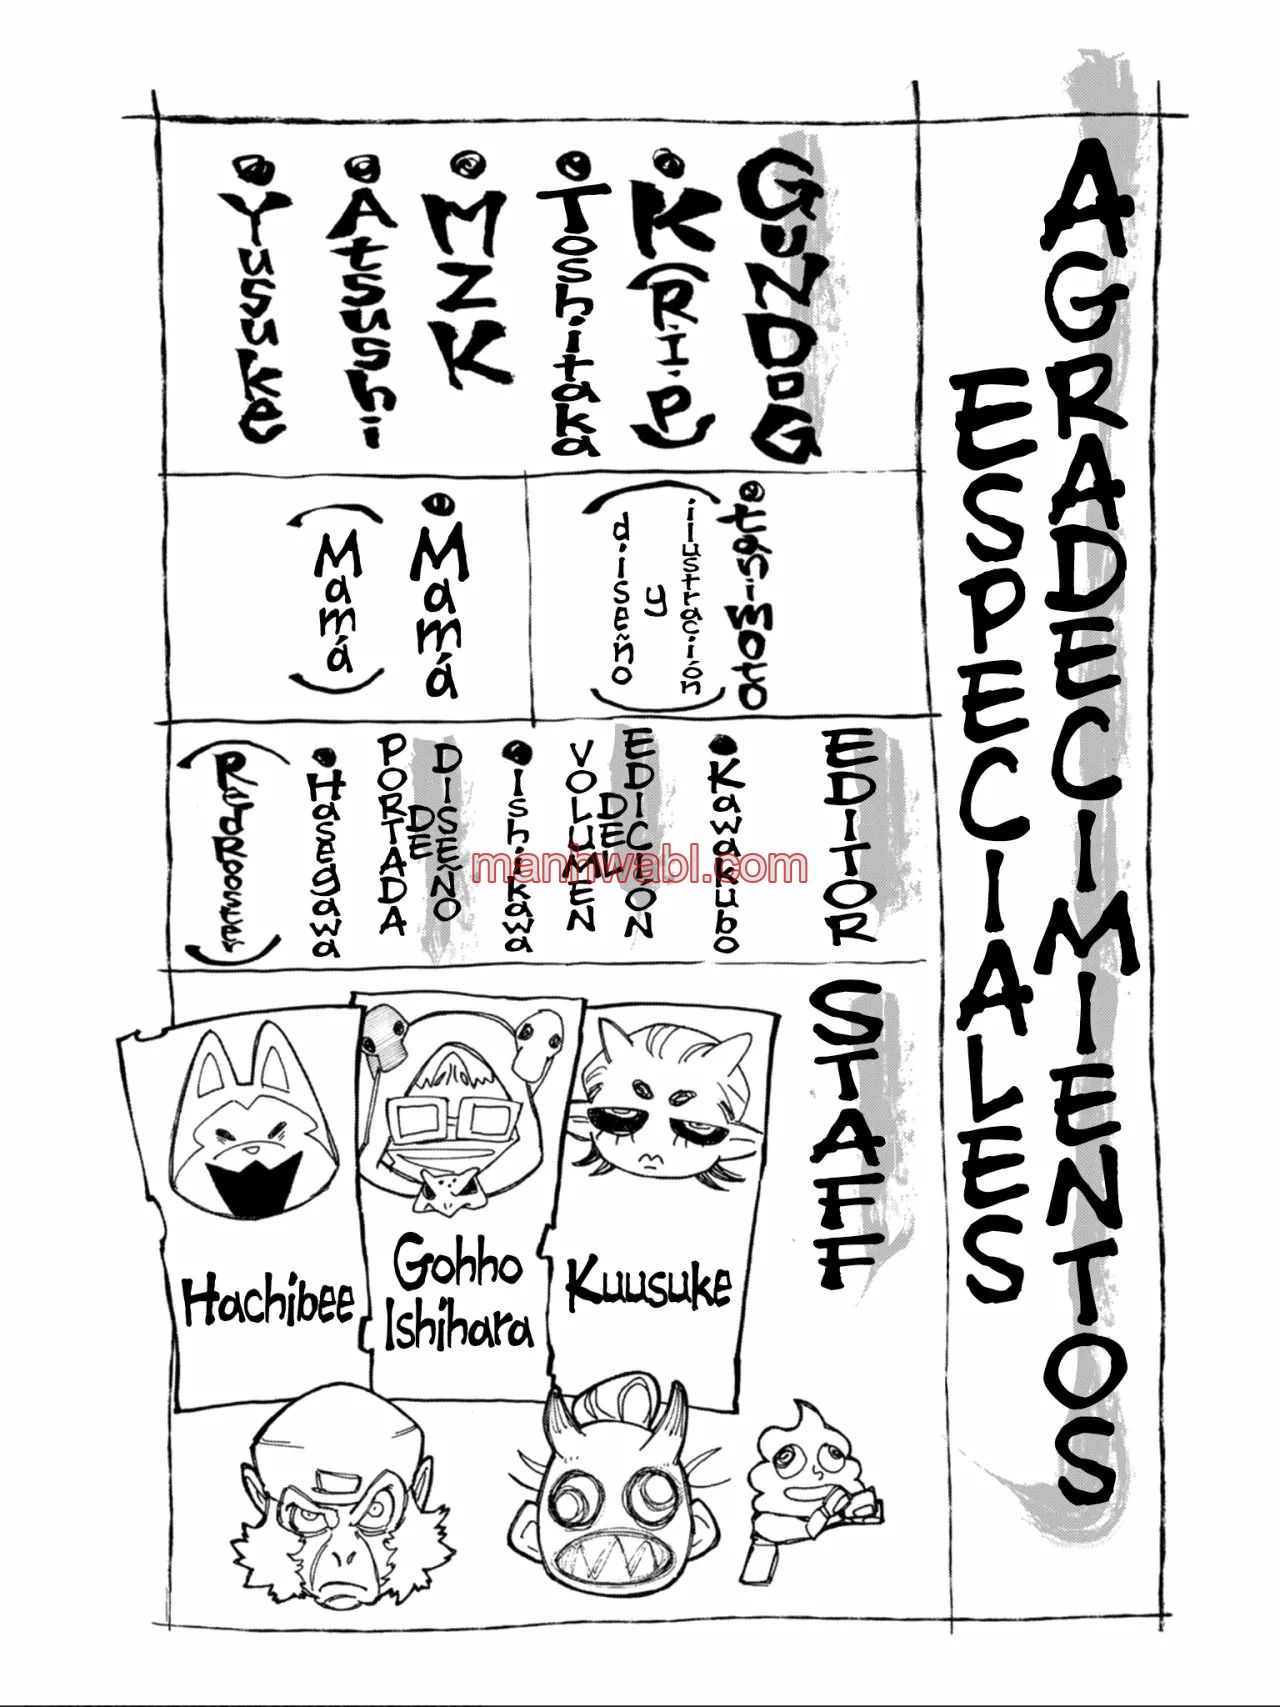 AGRADECIMIENTOS
ESPECIALES
GUNDOG
K
(R.I.P)
Toshitaka
MZK
Atsushi
Yusuke
tanimoto
(ilustración
y
diseño)
Mamá
(Mamá)
EDITOR
Kawakubo
EDICION
DEL
VOLUMEN
Ishikawa
DISEÑO
DE
PORTADA
Hasegawa
STAFF
Kuusuke
Gohho
Ishihara
Hachibee
manhwabl.com